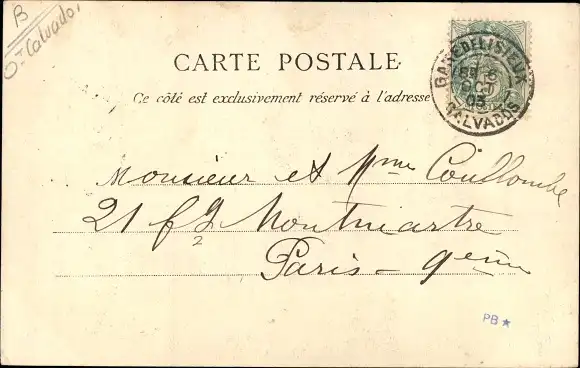 B
Ot Calvados
CARTE POSTALE
Ce côté est exclusivement réservé à l'adresse
GARE DE LISIEUX
OCT
03
CALVADOS
Monsieur et Mme Coullombe
21 fg Montmartre
Paris - 9eme
PB★